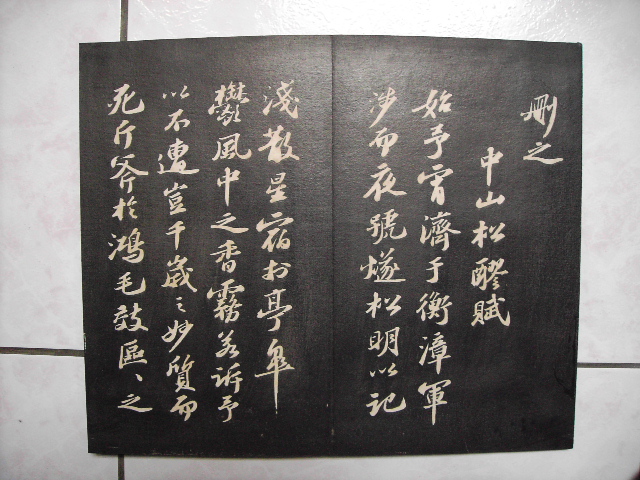 刪之
中山松醪賦
始予宵濟于衡漳軍
涉而夜號燧松明以記
淺散星宿於亭皋
鬱風中之香霧若訴予
以不遭豈千歲之妙質而
死斤斧於鴻毛效區〻之